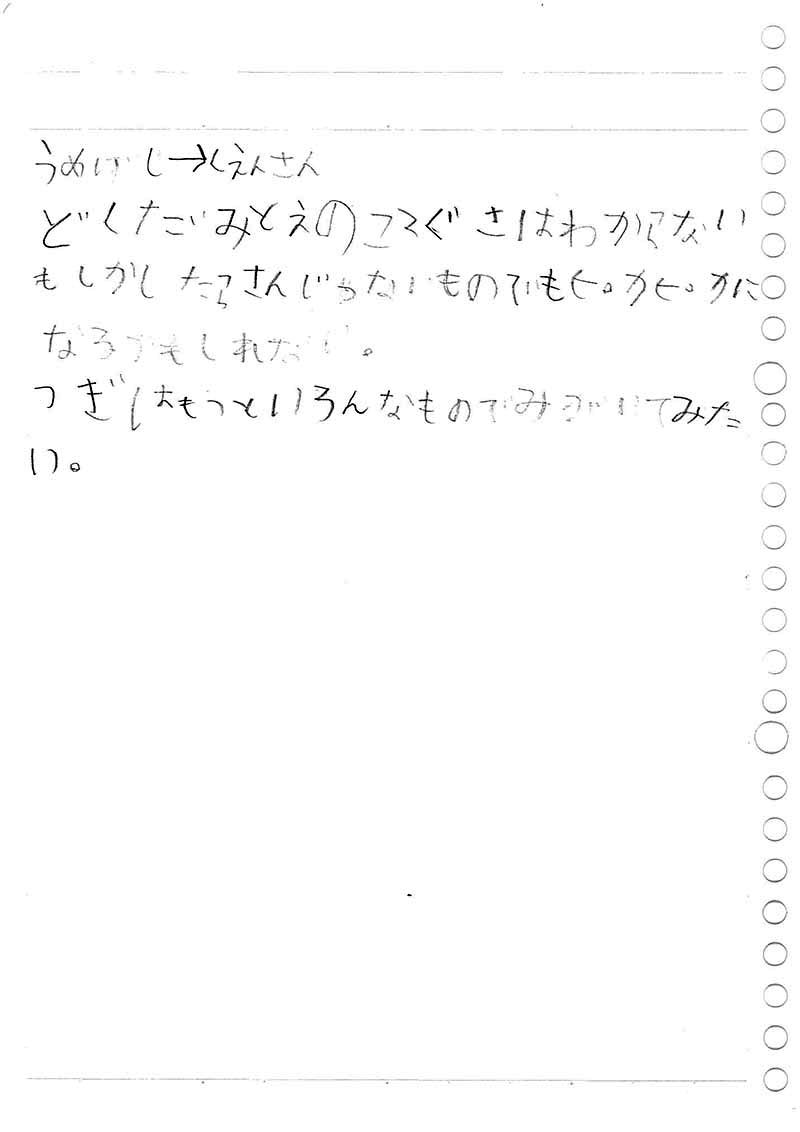 うめぼし→くえんさん
どくだみとえのころぐさはわからない
もしかしたらさんじゃないものでもピカピカに
なるかもしれない。
つぎはもっといろんなものでみがいてみた
い。